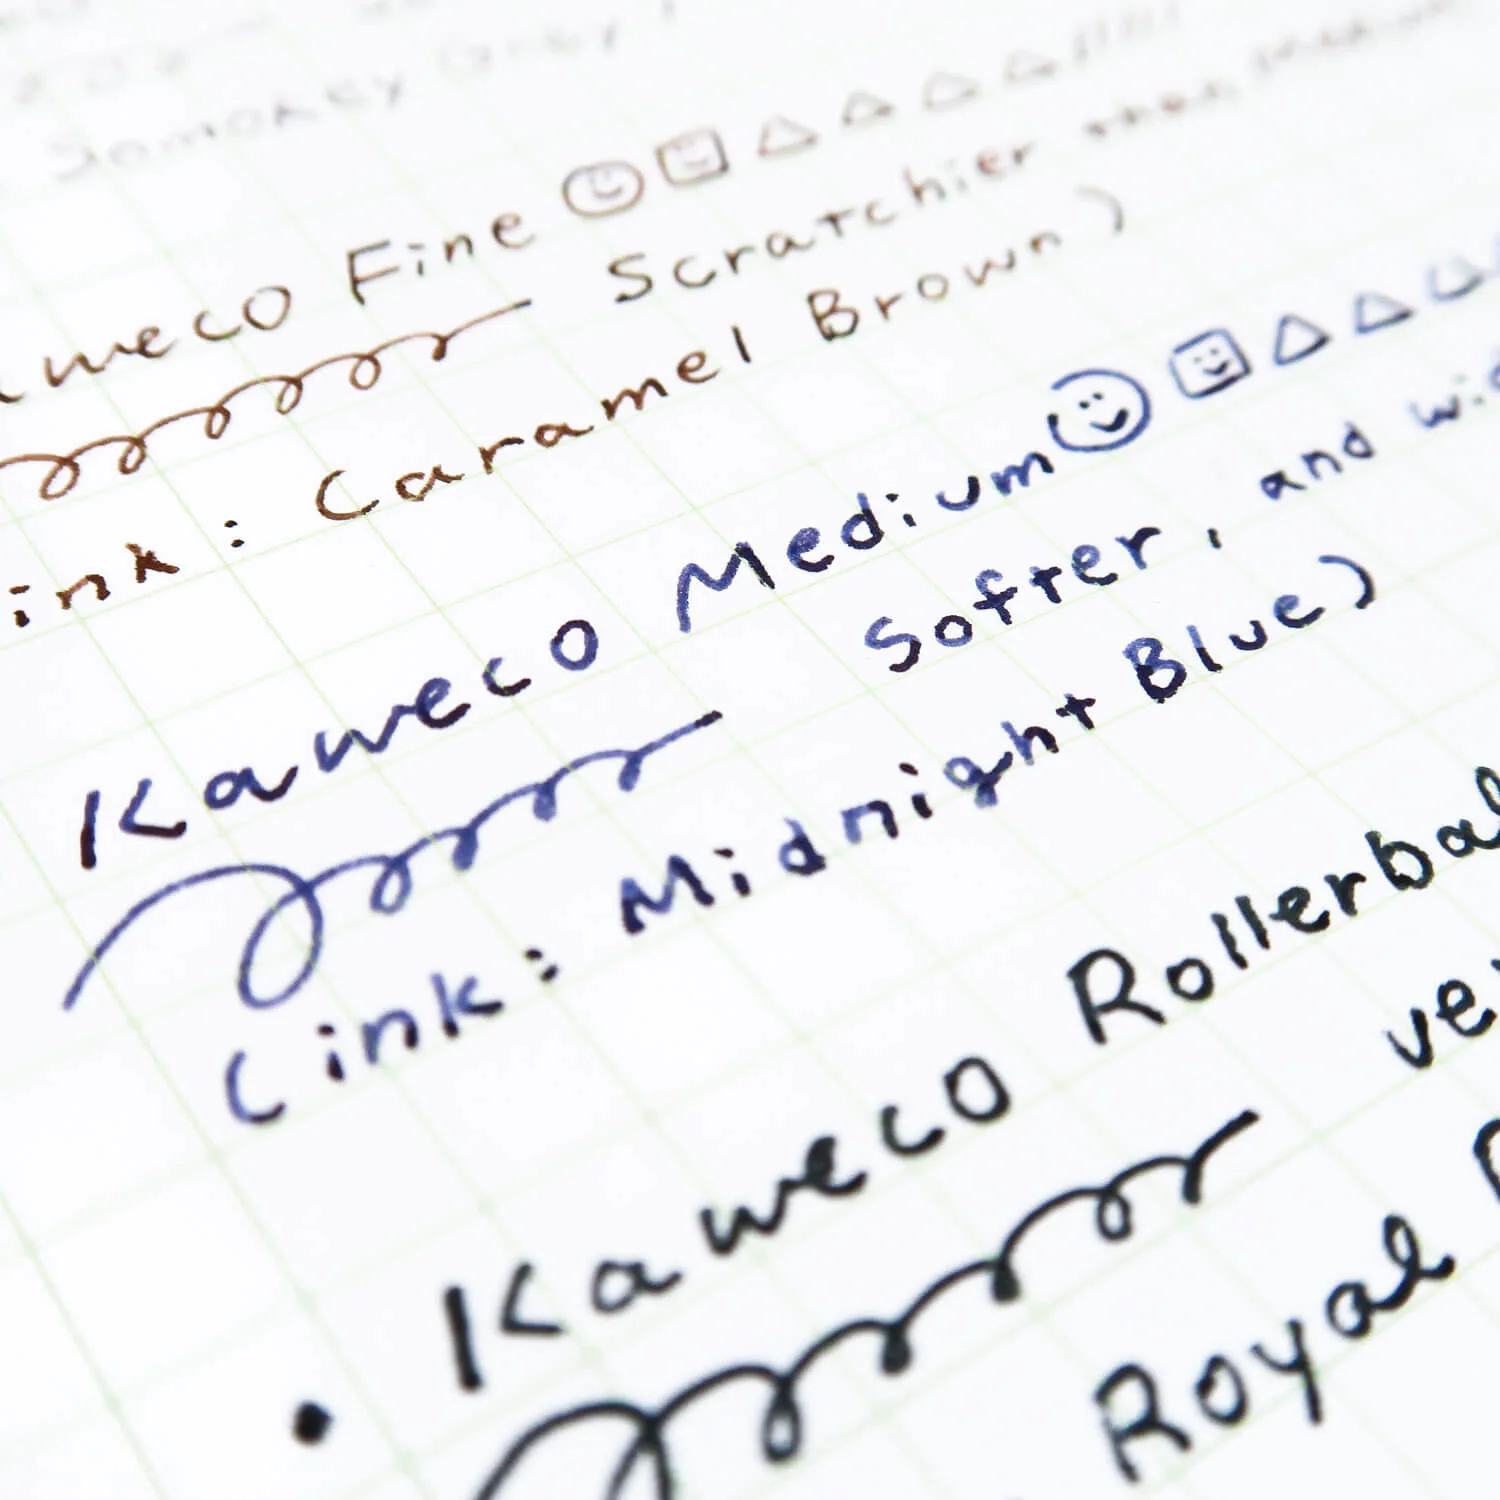 Somokey Grey
Kaweco Fine
Scratchier than Medium
ink: Caramel Brown)
Kaweco Medium
Softer, and
(ink: Midnight Blue)
Kaweco Rollerbal
Royal